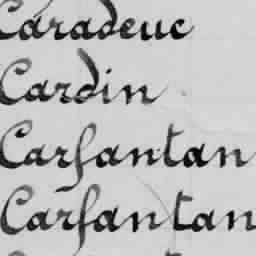 Caradeuc
Cardin
Carfantan
Carfantan